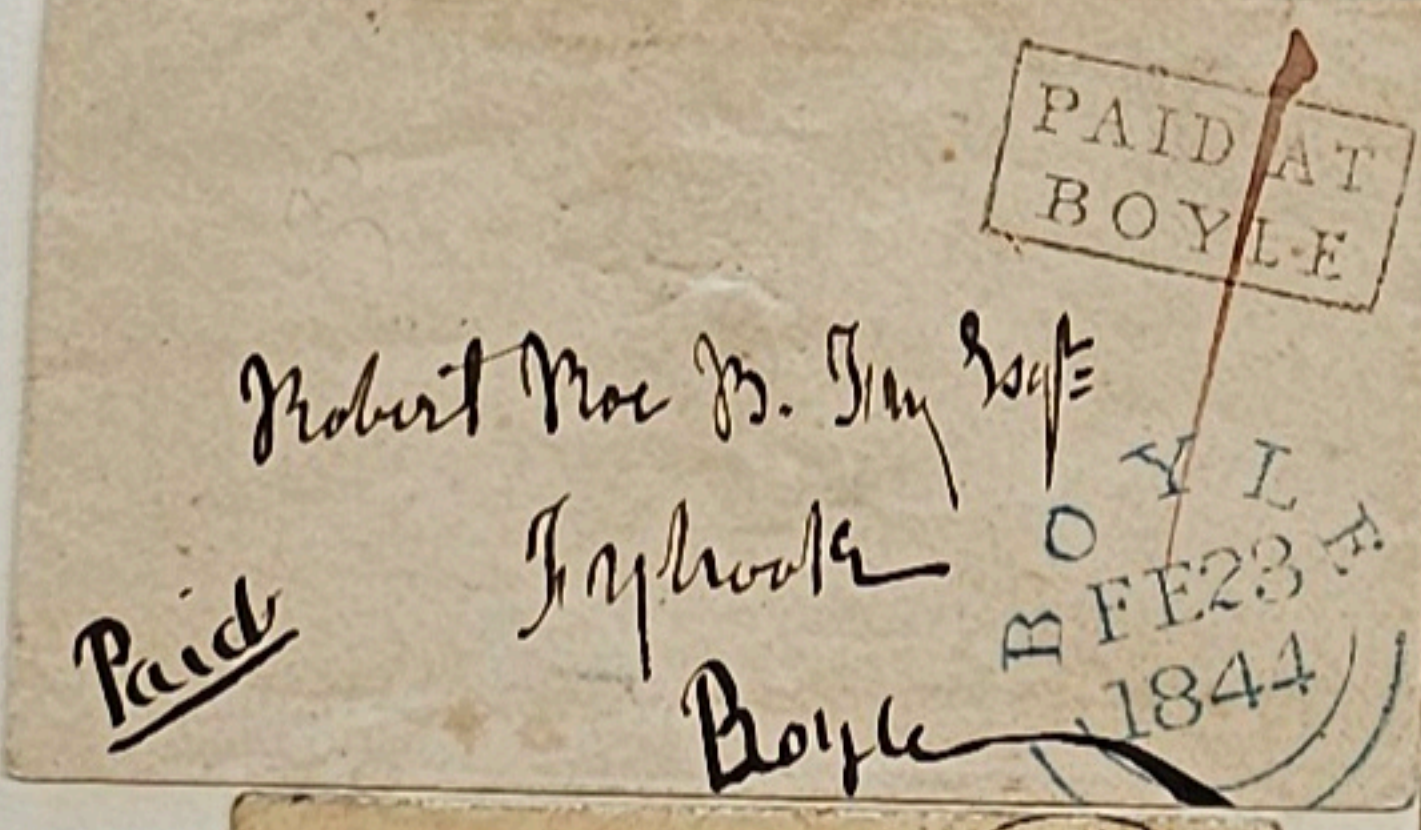 PAID AT
BOYLE
Robert Roe B. Fry Esqr
Frybrook
Boyle
Paid
BOYLE
FE23
1844